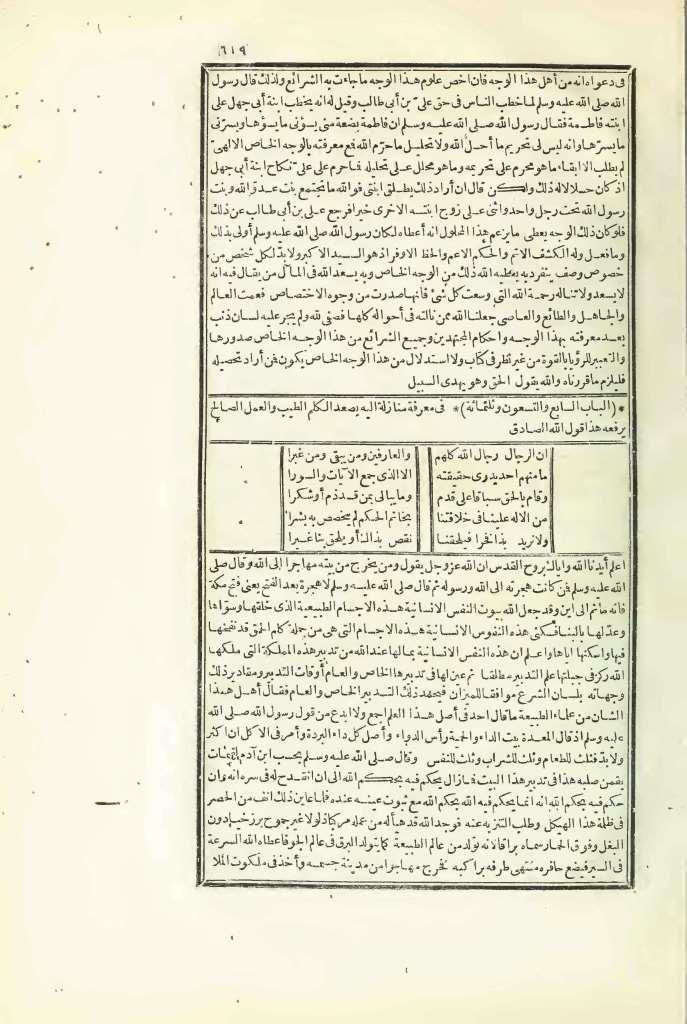 ٦١٩
في دعواه انه من أهل هذا الوجه فان اخص علوم هذا الوجه ما جاءت به الشرائع ولذلك قال رسول
الله صلى الله عليه وسلم لما خطب الناس في حق علي بن أبي طالب وقيل له انه يخطب ابنة أبي جهل على
ابنته فاطمة فقال رسول الله صلى الله عليه وسلم ان فاطمة بضعة مني يسوءني ما يسوءها ويسرني
ما يسرها وانه ليس لي تحريم ما أحل الله ولا تحليل ما حرم الله فمع معرفته بالوجه الخاص الالهي
لم يطلب الا ابقاء ما هو محرم على تحريمه وما هو محلل على تحليله فما حرم على علي نكاح ابنة أبي جهل
اذ كان حلالا له ذلك ولكن قال ان أراد ذلك يطلق ابنتي فوالله ما تجتمع بنت عدو الله وبنت
رسول الله تحت رجل واحد واثنى على زوج ابنته الاخرى خيرا فرجع علي بن أبي طالب عن ذلك
فلو كان ذلك الوجه يعطي ما يزعم هذا المحاول انه أعطاه لكان رسول الله صلى الله عليه وسلم أولى بذلك
وما فعل وله الكشف الاتم والحكم الاعم والحظ الاوفر اذ هو السيد الاكبر ولا بد لكل شخص من
خصوص وصف ينفرد به يعطيه الله ذلك من الوجه الخاص وبه يسعد الله في المآل من يقال فيه انه
لا يسعد ولا تناله رحمة الله التي وسعت كل شئ فانها صدرت من وجوه الاختصاص فعمت العالم
والجاهل والطائع والعاصي جعلنا الله ممن نالته في أحواله كلها فمضى لله ولم يجر عليه لسان ذنب
بعد معرفته بهذا الوجه واحكام المجتهدين وجميع الشرائع من هذا الوجه الخاص صدورها
والتعبير للرؤيا بالقوة من غير نظر في كتاب ولا استدلال من هذا الوجه الخاص يكون فمن أراد تحصيله
فليلزم ما قررناه والله يقول الحق وهو يهدي السبيل
* (الباب السابع والتسعون وثلثمائة) * في معرفة منازلة اليه يصعد الكلم الطيب والعمل الصالح
يرفعه هذا قول الله الصادق
ان الرجال رجال الله كلهم والعارفين ومن يبقى ومن غبرا
ما منهم احد يدري حقيقته الا الذي جمع الآيات والسورا
وقام بالحق سباقا على قدم وما يبالي بمن قد ذم أو شكرا
من الاله علينا في خلافتنا بخاتم الحكم لم يخصص به بشرا
ولا نريد بذا فخرا فيلحقنا نقص بذاك أو يلحق بنا غيرا
اعلم أيدنا الله واياك بروح القدس ان الله عز وجل يقول ومن يخرج من بيته مهاجرا الى الله وقال صلى
الله عليه وسلم فمن كانت هجرته الى الله ورسوله ثم قال صلى الله عليه وسلم لا هجرة بعد الفتح يعني فتح مكة
فانه ما ثم الى اين وقد جعل الله بيوت النفس الانسانية هذه الاجسام الطبيعية التي خلقها وسواها
وعدلها بالبناء فسكنى هذه النفوس الانسانية هذه الاجسام التي هي من جملة كلم الحق قد نفخها
فيها واسكنها اياها واعلم ان هذه النفس الانسانية بما لها عند الله من تدبير هذه المملكة التي ملكها
الله ركز في جبلتها علم التدبير مطلقا ثم عين لها في تدبيرها الخاص والعام أوقات التدبير ومقادير ذلك
وجهاته بلسان الشرع موافقا للميزان فيحمد ذلك التدبير الخاص والعام فقال أهل هذا
الشان من علماء الطبيعة ما قال احد في أصل هذا العلم اجمع ولا ابدع من قول رسول الله صلى الله
عليه وسلم اذ قال المعدة بيت الداء والحمية رأس الدواء وأصل كل داء البردة وأمر في الاكل ان اكثر
ولا بد فثلث للطعام وثلث للشراب وثلث للنفس وقال صلى الله عليه وسلم بحسب ابن آدم لقيمات
يقمن صلبه هذا في تدبير هذا البيت فما زال يحكم فيه بحكم الله الى ان انقدح له في سره انه وان
حكم فيه بحكم الله انه انما يحكم فيه الله بحكم الله مع ثبوت عينه عنده فلما عاين ذلك انف من الحصر
في ظلمة هذا الهيكل وطلب التنزيه عنه فوجد الله قد هيأ له من عمله مركبا ذلولا غير جموح برزخيا دون
البغل وفوق الحمار سماه براقا لانه تولد من عالم الطبيعة كما يتولد البرق في عالم الجو فاعطاه الله السرعة
في السير فيضع حافره منتهى طرفه براكبه فخرج مهاجرا من مدينة جسمه وأخذ في ملكوت الملا